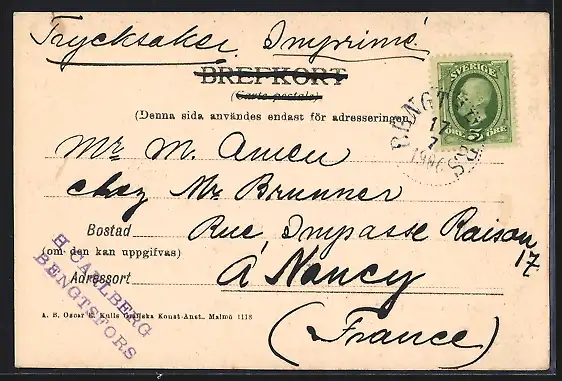 Trycksaker. Imprimé
BREFKORT
(Carte postale)
SVERIGE
5
ÖRE ÖRE
BENGTSFORS
17
7
1906
(Denna sida användes endast för adresseringen
Mr M. Amen
chez Mr Brunner
Bostad Rue Impasse Raison
17
(om den kan uppgifvas)
Adressort à Nancy
(France)
H. CARLBERG
BENGTSFORS
A. B. Oscar E. Kulls Grafiska Konst-Anst., Malmö 1118